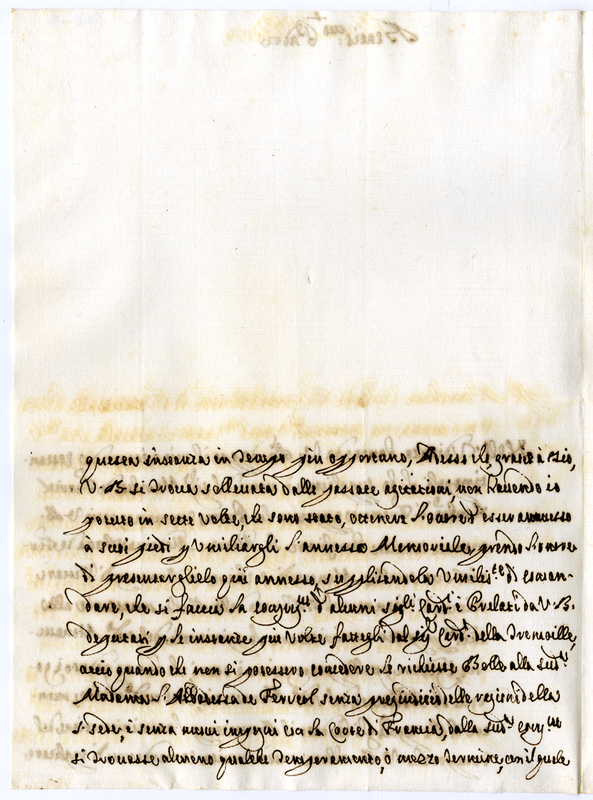 questa instanza in tempo più opportuno, Adesso che grazie à Dio,
V. B. si trova sollevata dalle passate agitationi, non havendo io
potuto in sette volte, che sono stato, ottenere l'onore d'esser ammesso
à suoi piedi p Umiliargli l'annesso Memoriale, prendo l'onore
di presentarglielo quì annesso, supplicandola Umilis.te di coman-
dare, che si faccia la cong.ne d'alcuni sig.ri Card.li è Prelati da V. B.
deputati p le instanze più volte fattegli dal sig. Card.le della Tremoille,
acciò quando che non si potessero concedere le richieste Bolle alla sud.a
Madama l'Abbadessa de Ferviol senza pregiudicio delle ragioni della
S. Sede, è senza nuovi impegni con la Corte di Francia, dalla sud.a cong.ne
si trovasse almeno qualche temperamento, ò mezzo termine, con il quale